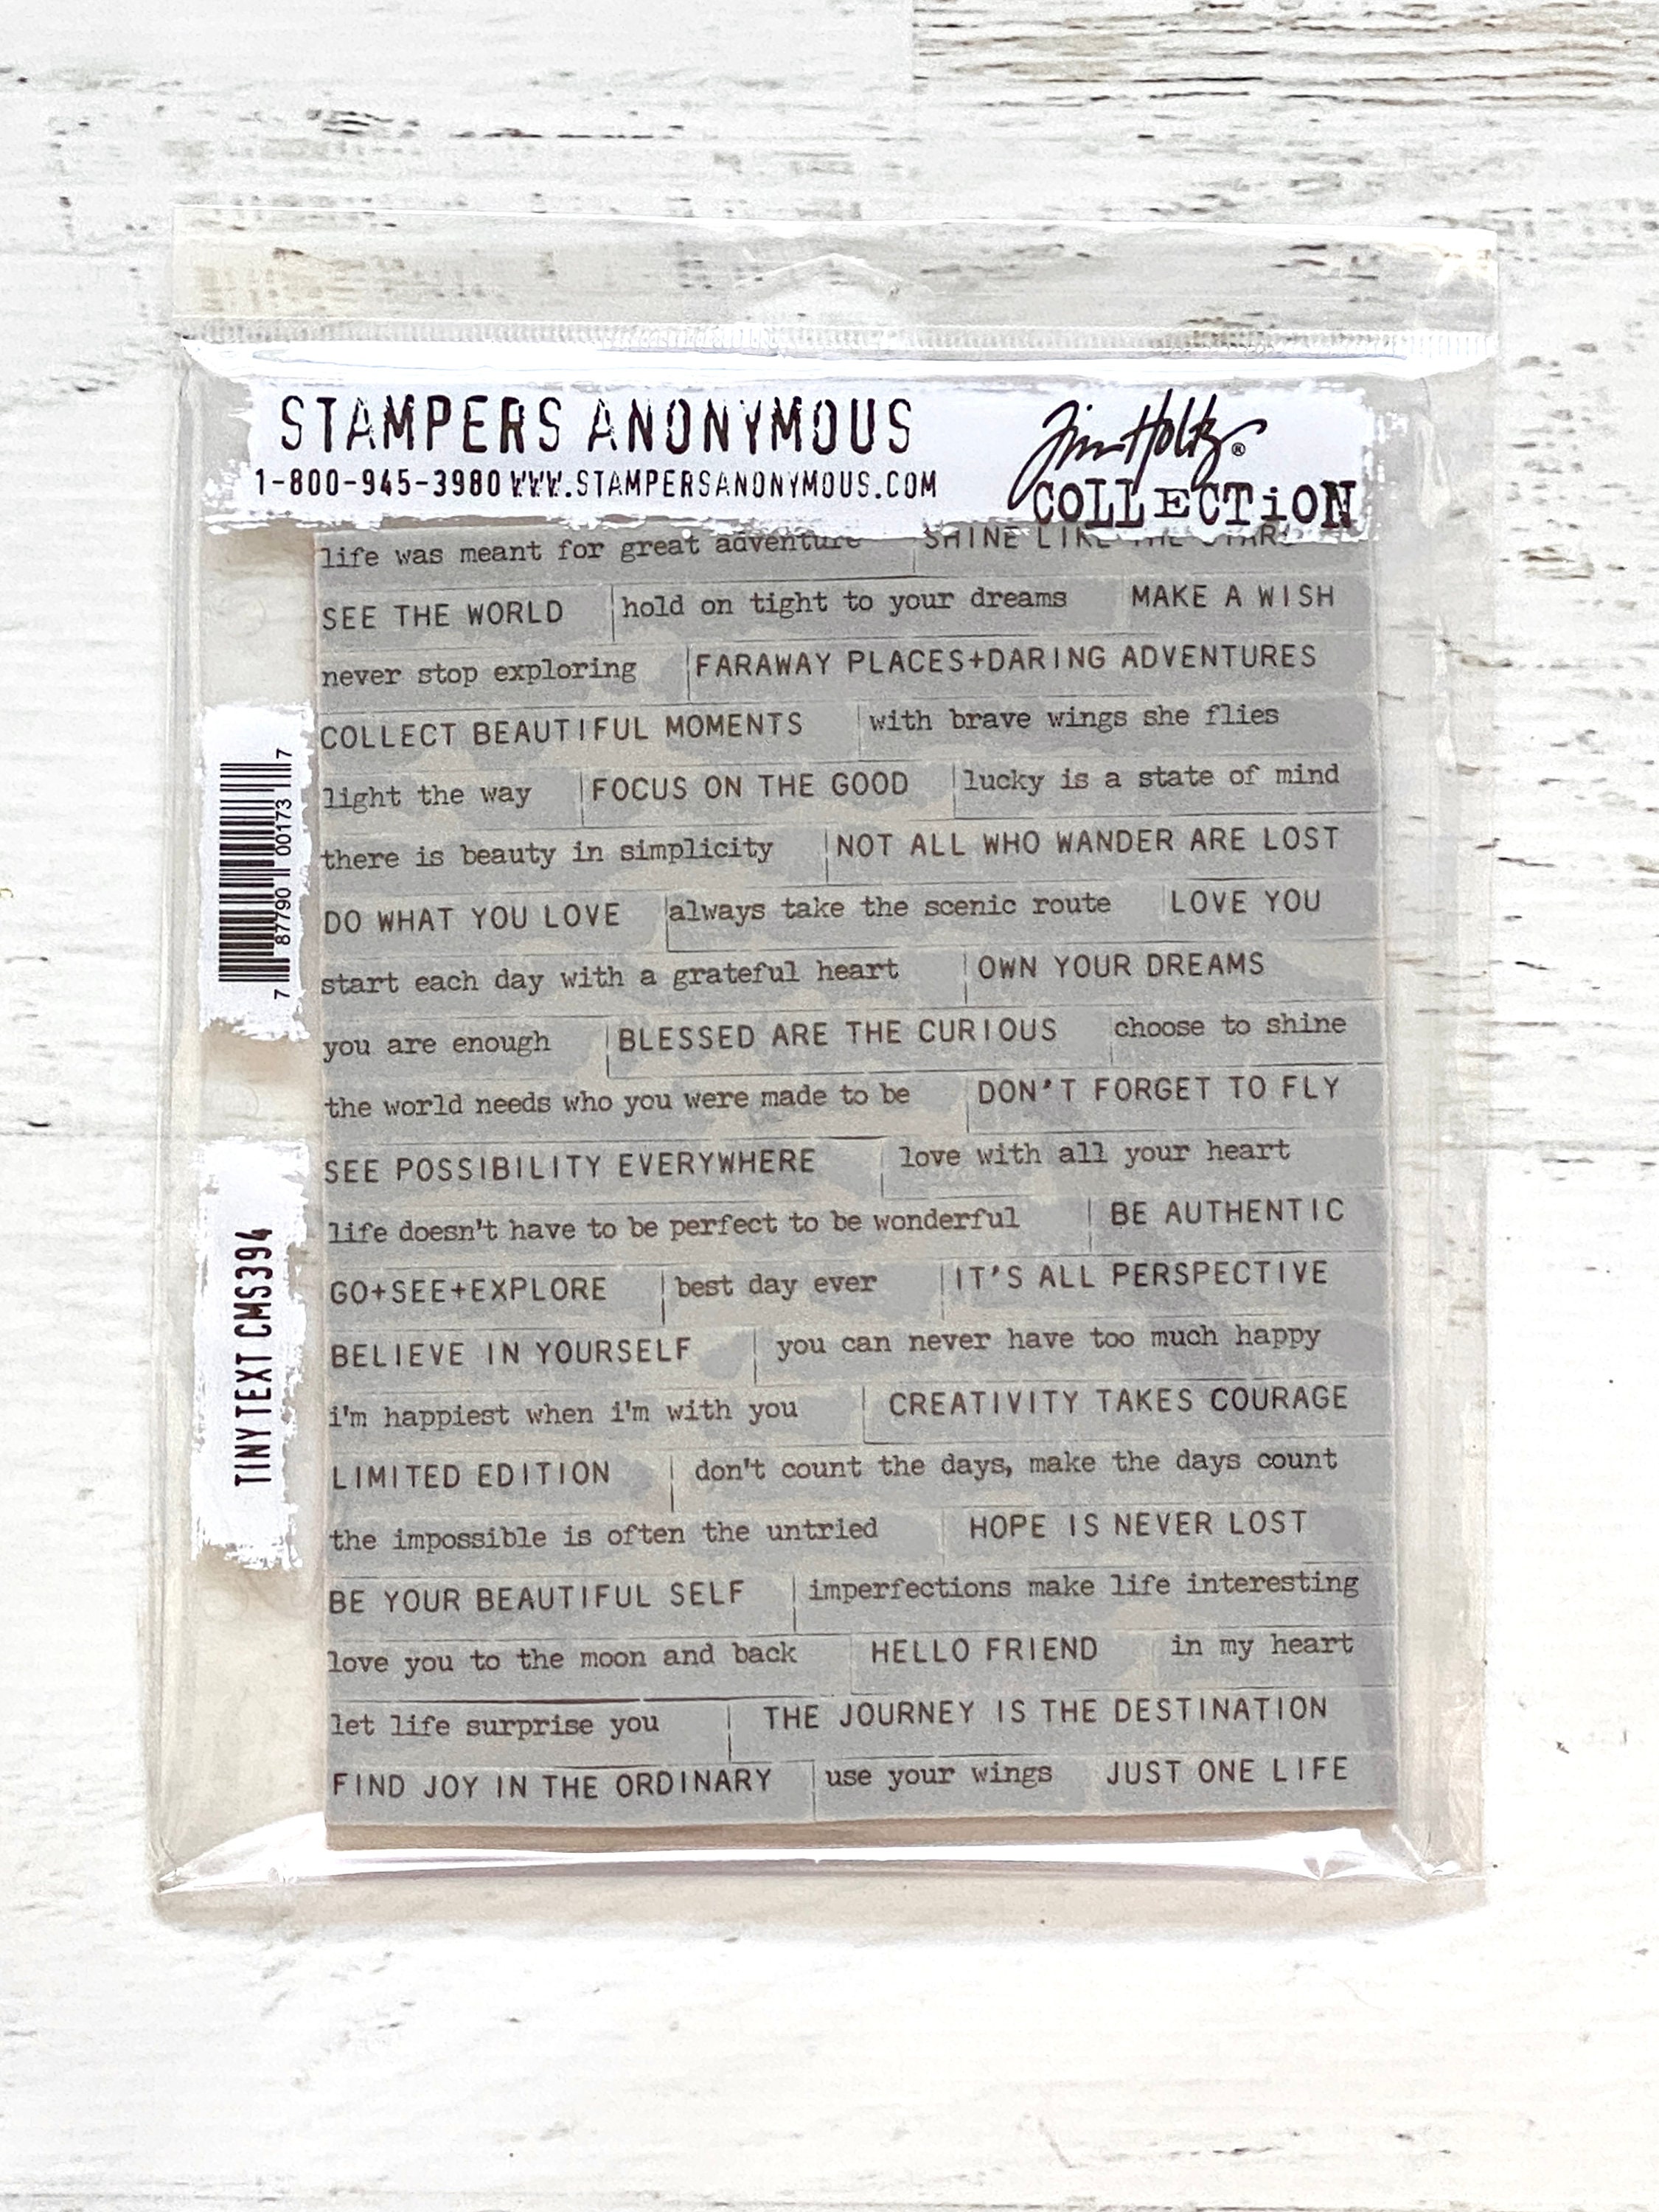 STAMPERS ANONYMOUS
1-800-945-3980 WWW.STAMPERSANONYMOUS.COM
Tim Holtz®
COLLECTiON
life was meant for great adventure SHINE LIKE THE STARS
SEE THE WORLD hold on tight to your dreams MAKE A WISH
never stop exploring FARAWAY PLACES+DARING ADVENTURES
COLLECT BEAUTIFUL MOMENTS with brave wings she flies
light the way FOCUS ON THE GOOD lucky is a state of mind
there is beauty in simplicity NOT ALL WHO WANDER ARE LOST
DO WHAT YOU LOVE always take the scenic route LOVE YOU
start each day with a grateful heart OWN YOUR DREAMS
you are enough BLESSED ARE THE CURIOUS choose to shine
the world needs who you were made to be DON'T FORGET TO FLY
SEE POSSIBILITY EVERYWHERE love with all your heart
life doesn't have to be perfect to be wonderful BE AUTHENTIC
GO+SEE+EXPLORE best day ever IT'S ALL PERSPECTIVE
BELIEVE IN YOURSELF you can never have too much happy
i'm happiest when i'm with you CREATIVITY TAKES COURAGE
LIMITED EDITION don't count the days, make the days count
the impossible is often the untried HOPE IS NEVER LOST
BE YOUR BEAUTIFUL SELF imperfections make life interesting
love you to the moon and back HELLO FRIEND in my heart
let life surprise you THE JOURNEY IS THE DESTINATION
FIND JOY IN THE ORDINARY use your wings JUST ONE LIFE
7 87790 00173 7
TINY TEXT CMS394